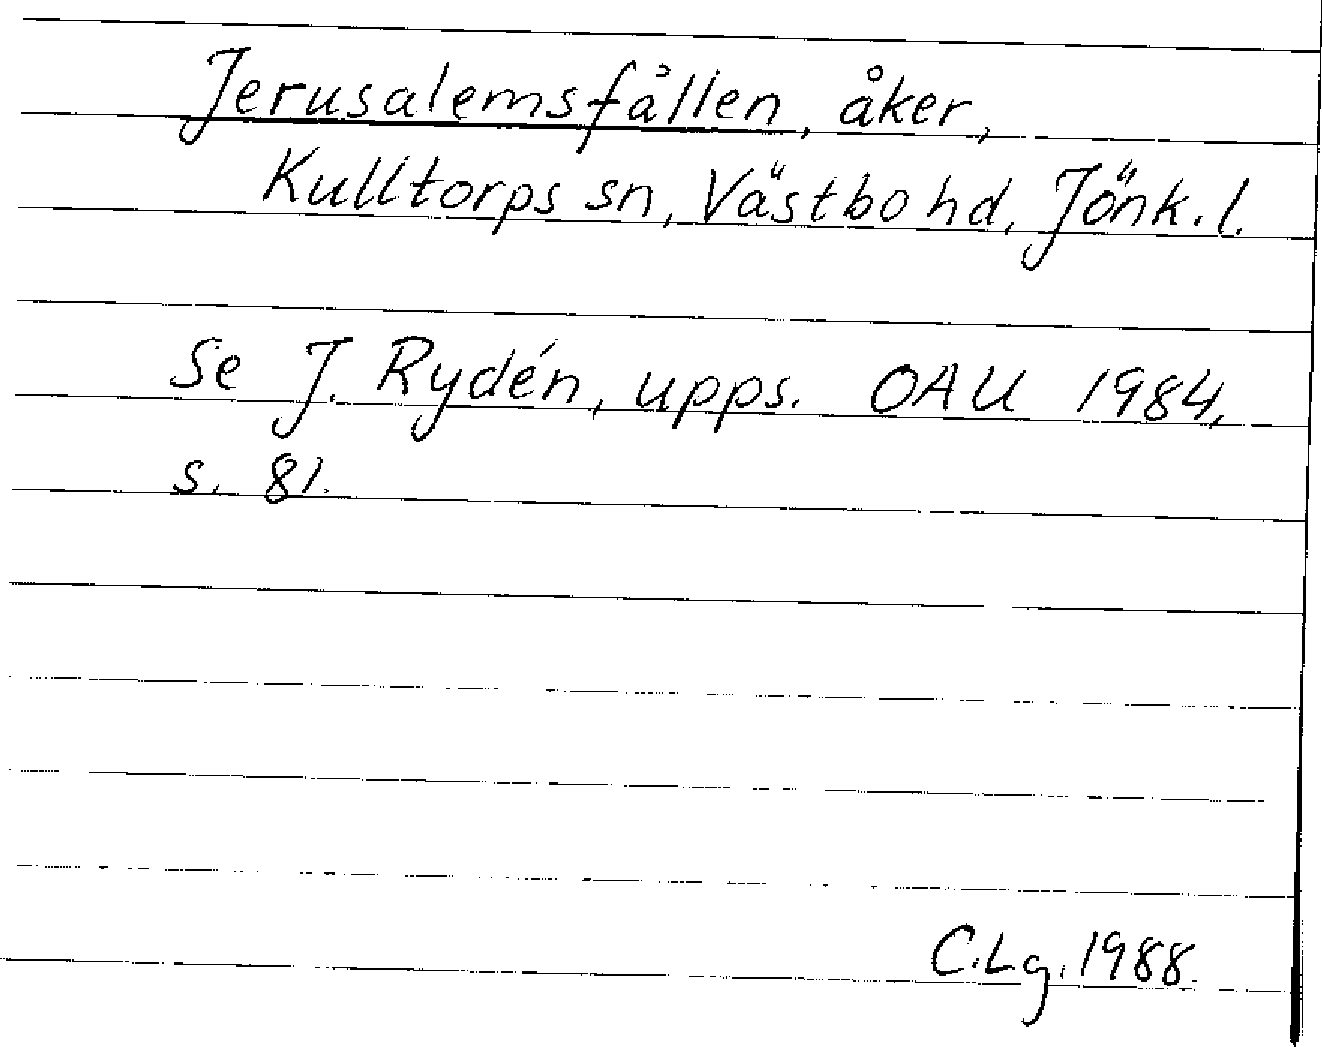 Jerusalemsfållen, åker,
Kulltorps sn, Västbo hd, Jönk. l.
Se J. Rydén, upps. OAU 1984,
s. 81.
C.Lg. 1988.